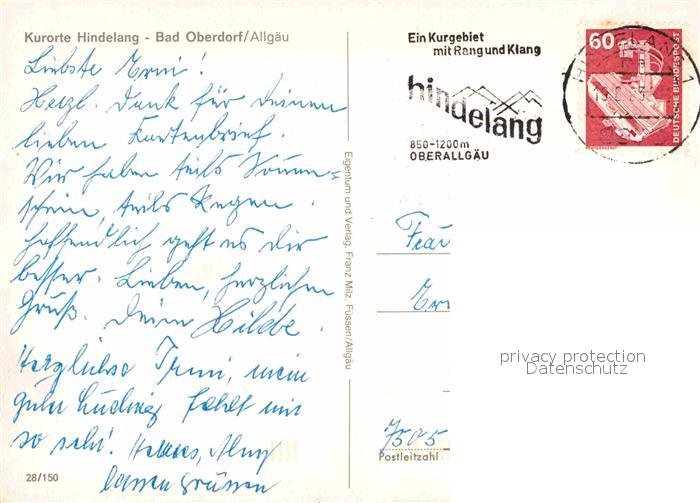 Kurorte Hindelang - Bad Oberdorf/Allgäu
Liebste Erni!
Herzl. Dank für Deinen
lieben Kartenbrief.
Wir haben teils Sonnen=
schein, teils Regen.
Hoffendlich geht es Dir
besser. Lieben, herzlichen
Gruß. Deine Hilde.
Herzlichst Irmi, mein
guter Ludwig fehlt mir
so sehr!
lassen grüssen
28/150
Eigentum und Verlag, Franz Milz, Füssen/Allgäu
Ein Kurgebiet
mit Rang und Klang
hindelang
850-1200m
OBERALLGÄU
60
DEUTSCHE BUNDESPOST
Frau
7505
Postleitzahl
privacy protection
Datenschutz